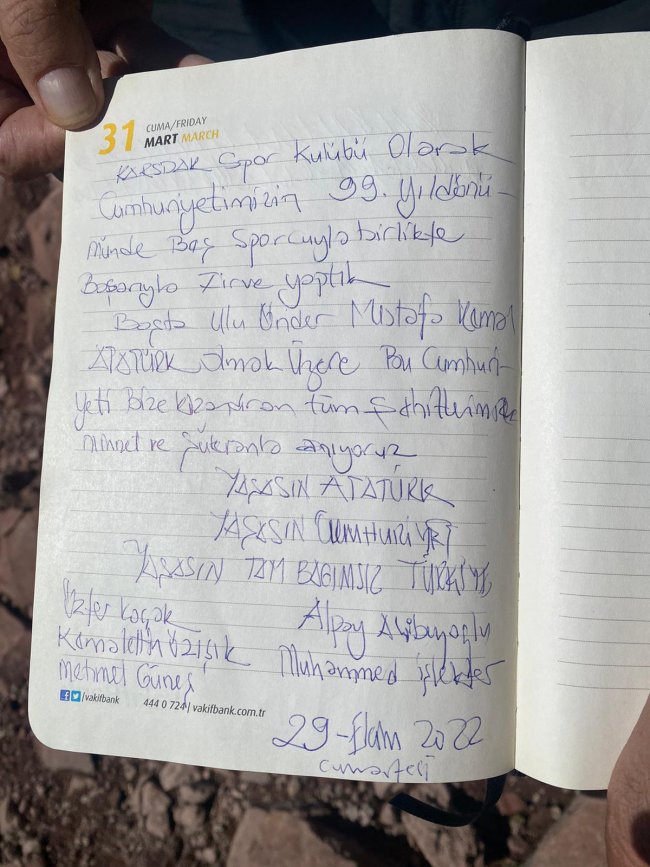 31 CUMA/FRIDAY
MART MARCH
KARSDAK Spor Kulübü Olarak
Cumhuriyetimizin 99. yıldönü-
münde Beş Sporcuyla birlikte
Başarıyla Zirve yaptık
Başta Ulu Önder Mustafa Kemal
ATATÜRK olmak Üzere Bu Cumhuri-
yeti Bize kazandıran tüm Şehitlerimize
minnet ve Şükranla anıyoruz
YAŞASIN ATATÜRK
YAŞASIN CUMHURİYET
YAŞASIN TAM BAĞIMSIZ TÜRKİYE
Üzfer Koçak Alpay
Kamalettin Özışık Muhammed İşlekter
Mehmet Güneş
/vakifbank 444 0 724 | vakifbank.com.tr
29-Ekim 2022
cumartesi